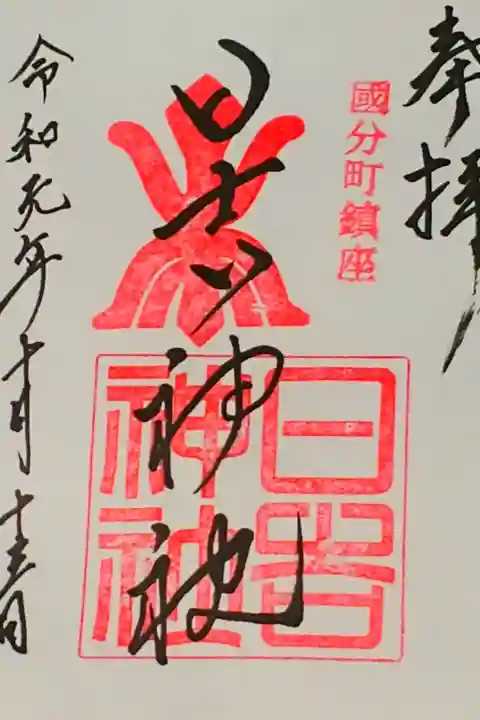 奉拝
國分町鎮座
日吉神社
日吉神社
令和元年十一月十三日